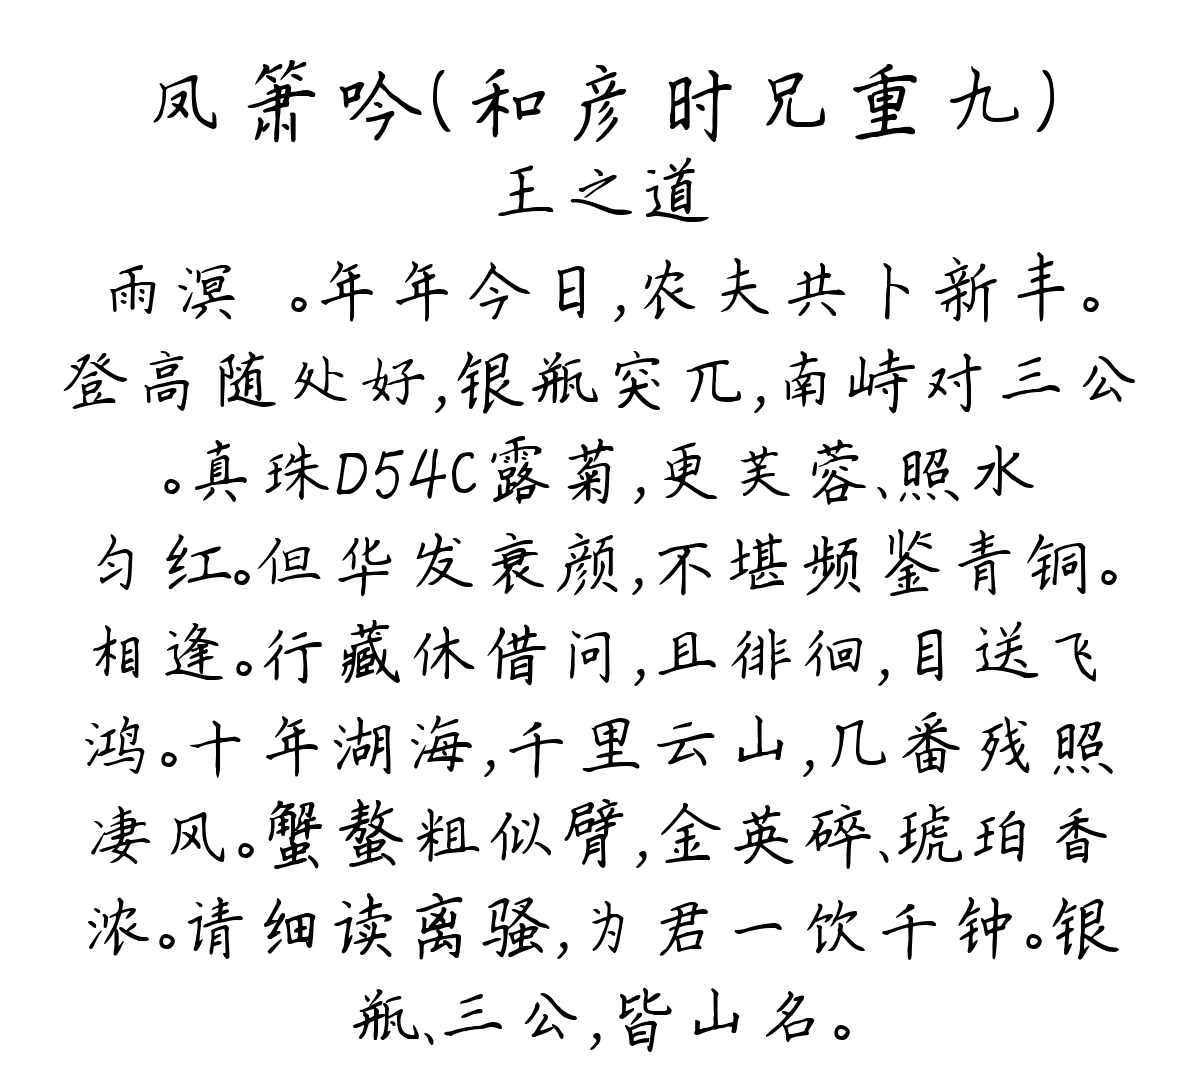 凤箫吟(和彦时兄重九)
王之道
雨溟 。年年今日,农夫共卜新丰。
登高随处好,银瓶突兀,南峙对三公
。真珠D54C露菊,更芙蓉、照水
匀红。但华发衰颜,不堪频鉴青铜。
相逢。行藏休借问,且徘徊,目送飞
鸿。十年湖海,千里云山,几番残照
凄风。蟹螯粗似臂,金英碎、琥珀香
浓。请细读离骚,为君一饮千钟。银
瓶、三公,皆山名。